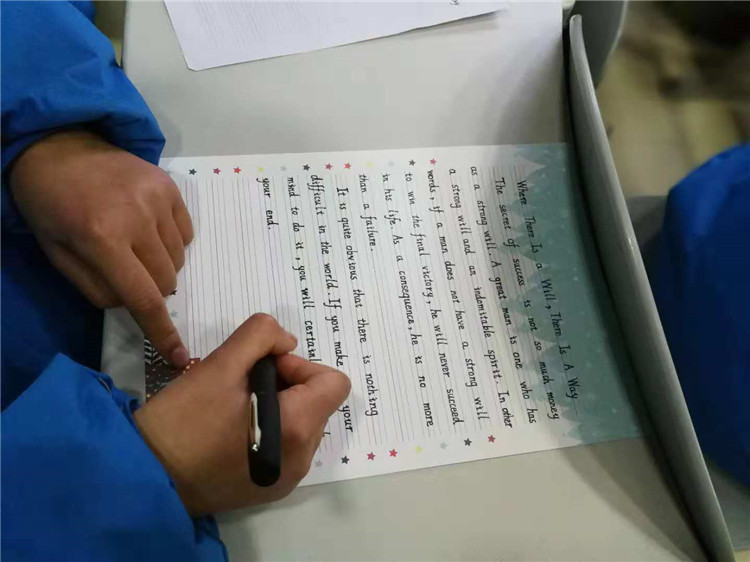 Where There Is a Will, There Is A Way
The secret of success is not so much money
as a strong will. A great man is one who has
a strong will and an indomitable spirit. In other
words, if a man does not have a strong will
to win the final victory, he will never succeed
in his life. As a consequence, he is no more
than a failure.
It is quite obvious that there is nothing
difficult in the world. If you make your
mind to do it, you will
your end.